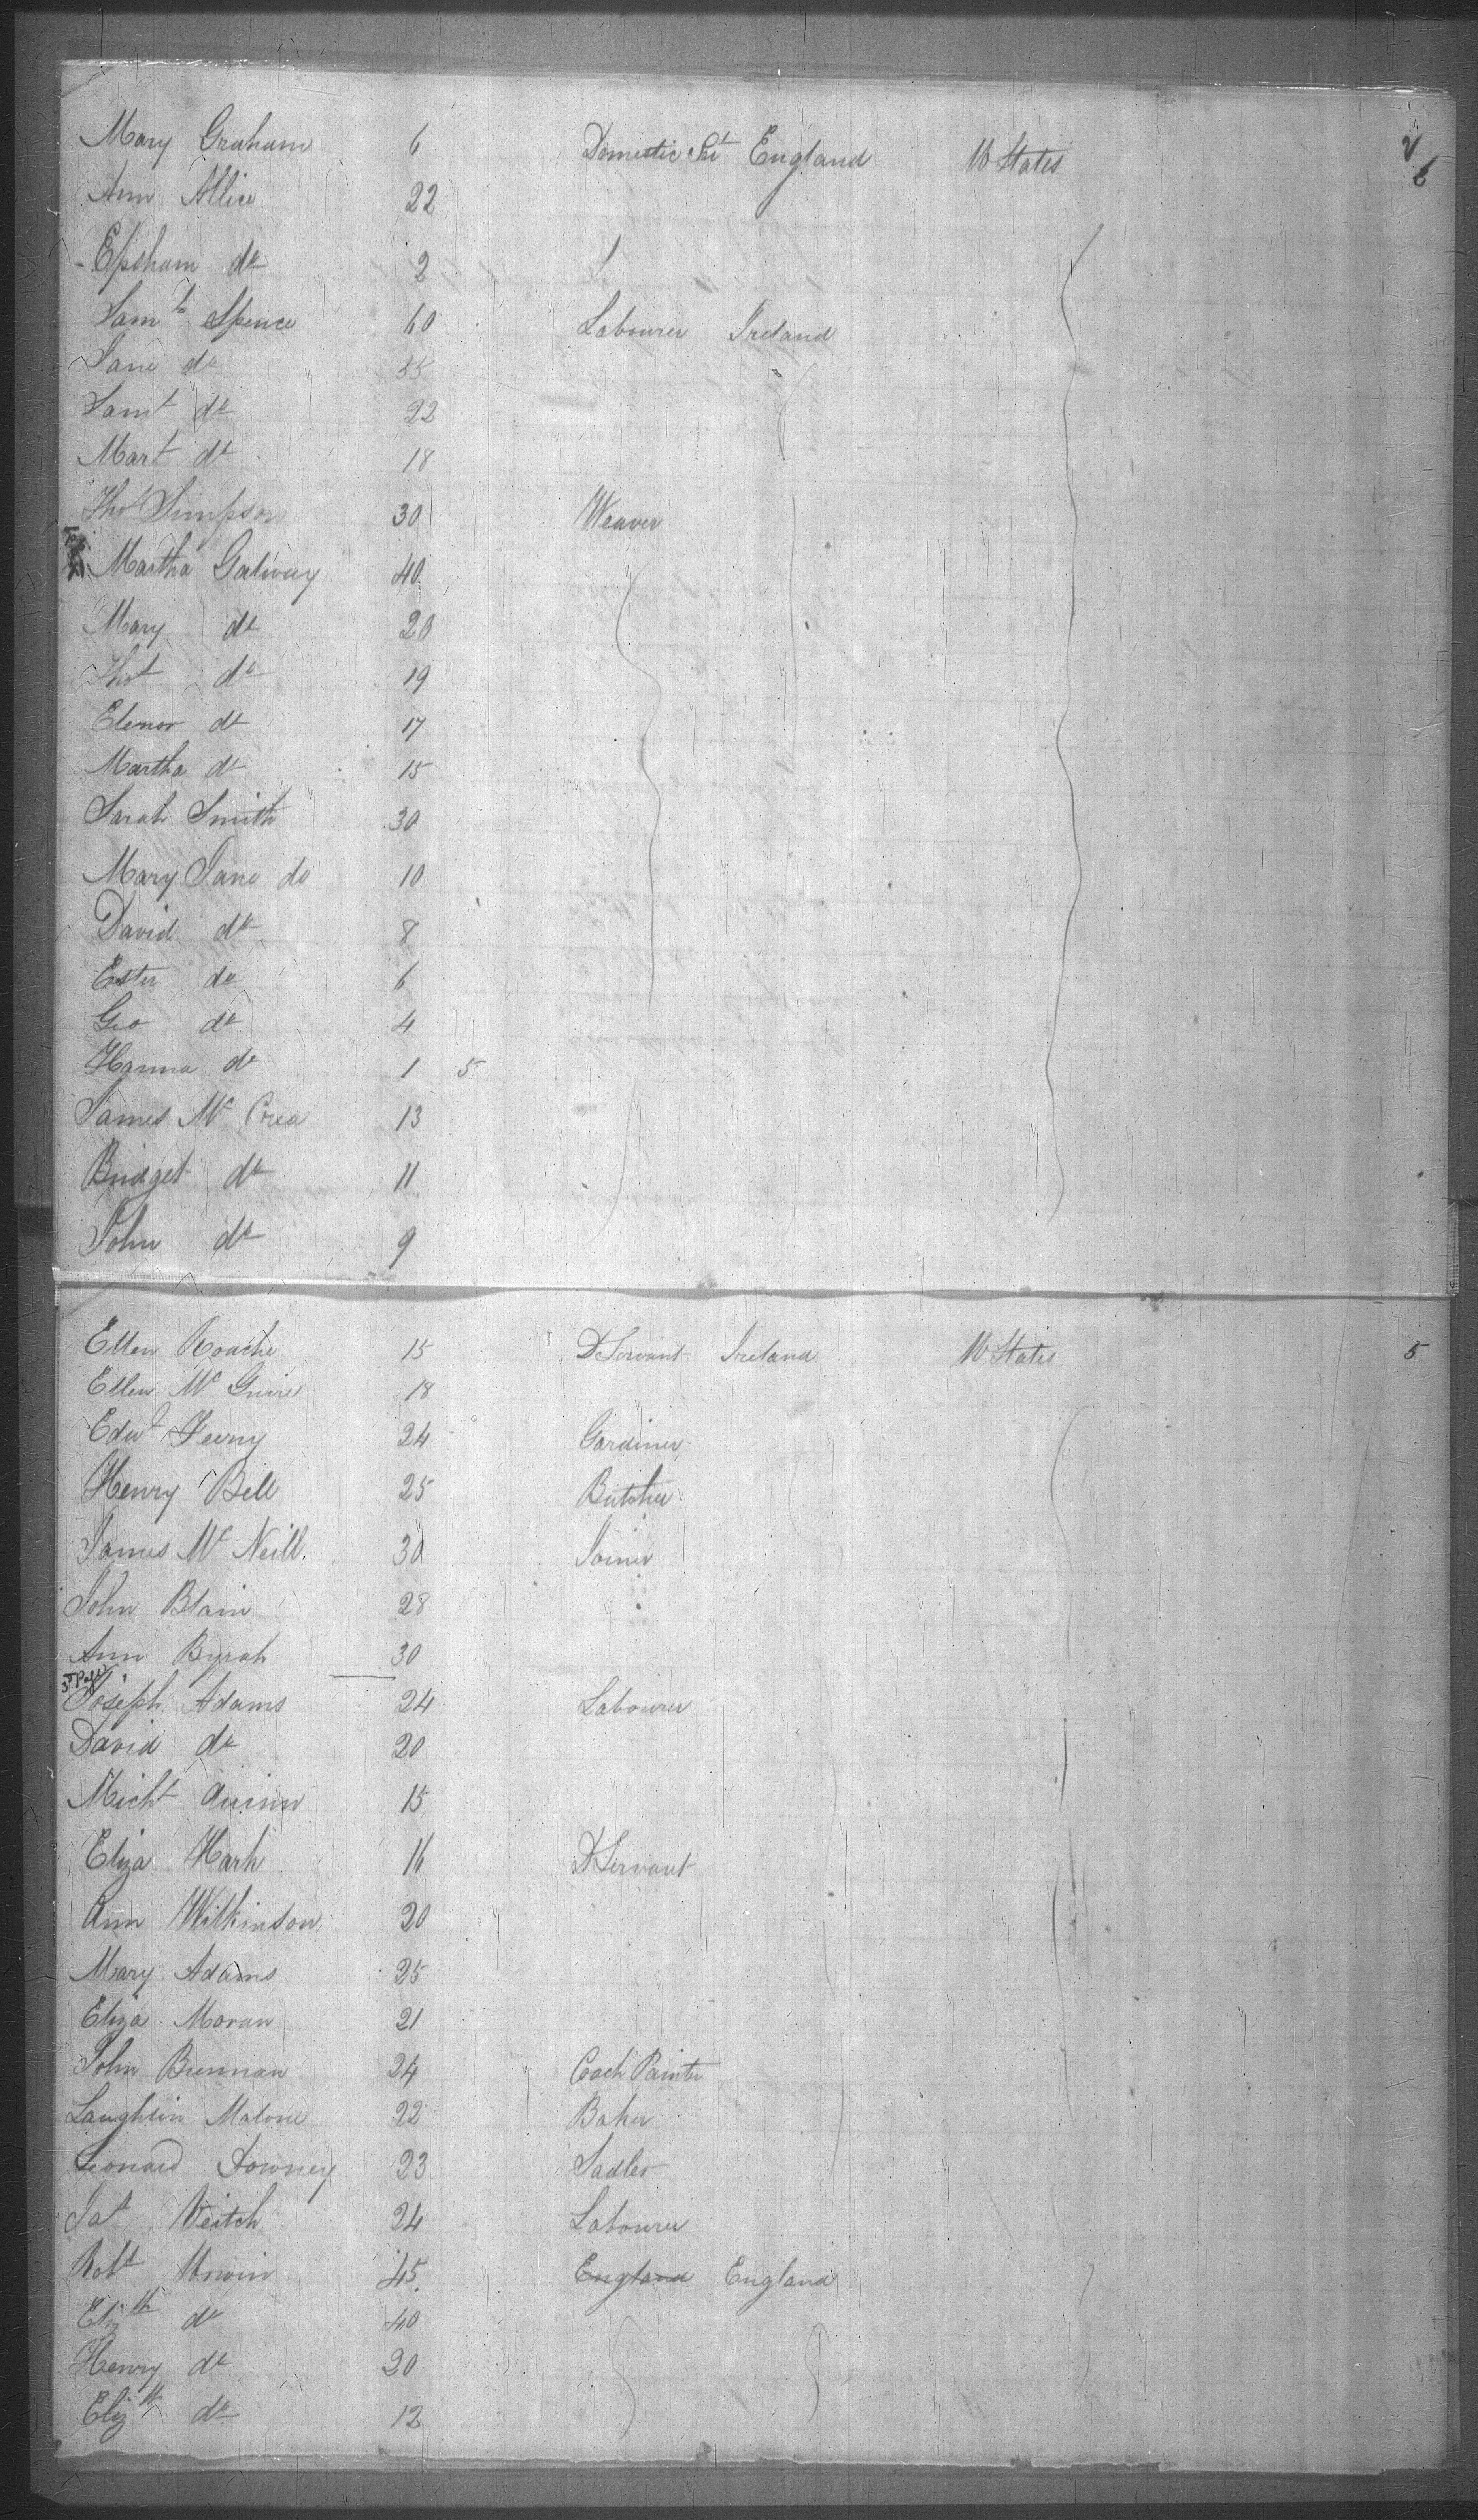 Mary Graham 6 Domestic Svt England U States
Ann Allice 22
Epsham do 2
Saml Spence 60 Labourer Ireland
Jane do 55
Saml do 22
Mart do 18
Thos Simpson 30 Weaver
Martha Galway 40
Mary do 20
Thos do 19
Elenor do 17
Martha do 15
Sarah Smith 30
Mary Jane do 10
David do 8
Ester do 6
Geo do 4
Hanna do 1 5
James Mc Crea 13
Bridget do 11
John do 9
Ellen Roache 15 D Servant Ireland U States 5
Ellen Mc Guire 18
Edwd Feeny 24 Gardiner
Henry Bell 25 Butcher
James Mc Neill. 30 Joiner
John Blain 28
Ann Byrah 30
Joseph Adams 24 Labourer
David do 20
Michl Quinn 15
Eliza Hark 16 D Servant
Ann Wilkinson 20
Mary Adams 25
Eliza Moran 21
John Brennan 24 Coach Painter
Laughlin Malone 22 Baker
Leonard Downey 23 Sadler
Jas Veitch 24 Labourer
Robt Urwin 45 England England
Elizth do 40
Henry do 20
Elizth do 12